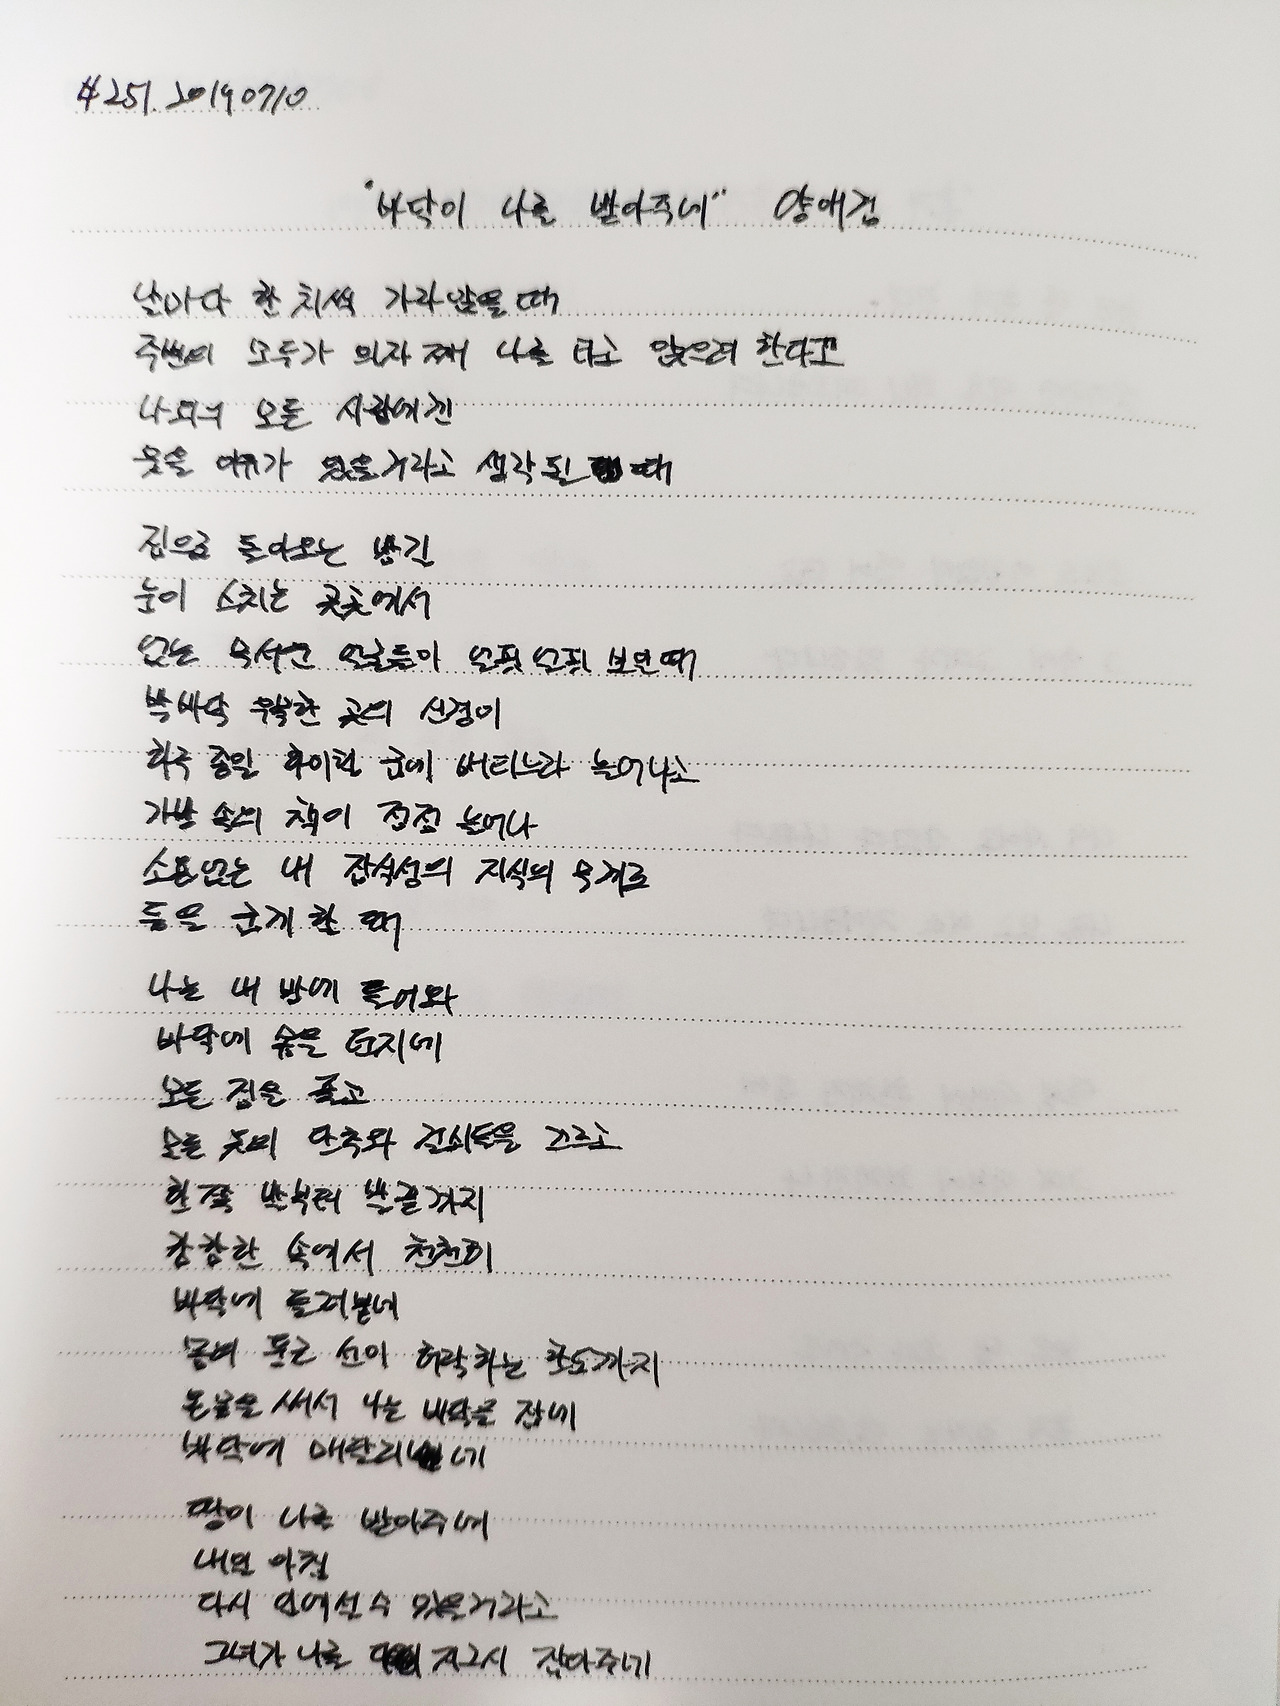 #251. 20190710
"바닥이 나를 받아주네" 양애경
날마다 한 치씩 가라앉을 때
주변의 모두가 의자 째 나를 타고 앉으려 한다고
나 외의 모든 사람에겐
웃을 이유가 있을거라고 생각될 때
집으로 돌아오는 밤길
눈이 스치는 곳곳에서
없는 무서운 얼굴들이 얼핏얼핏 보일때
발바닥 우묵한 곳의 신경이
하루 종일 하이힐 굽에 버티느라 늘어나고
가방 속의 책이 점점 늘어나
소용없는 내 잡식성의 지식의 무게로
등을 굽게 할 때
나는 내 방에 돌아와
바닥에 몸을 던지네
모든 짐을 풀고
모든 옷의 단추와 걸쇠들을 끄르고
한쪽 볼부터 발끝까지
캄캄한 속에서 천천히
바닥에 들러붙네
몸의 둥근 선이 허락하는 한도까지
온몸을 써서 나는 바닥을 잡네
바닥에 매달리네
땅이 나를 받아주네
내일 아침
다시 일어설 수 있을거라고
그녀가 나를 지그시 잡아주네